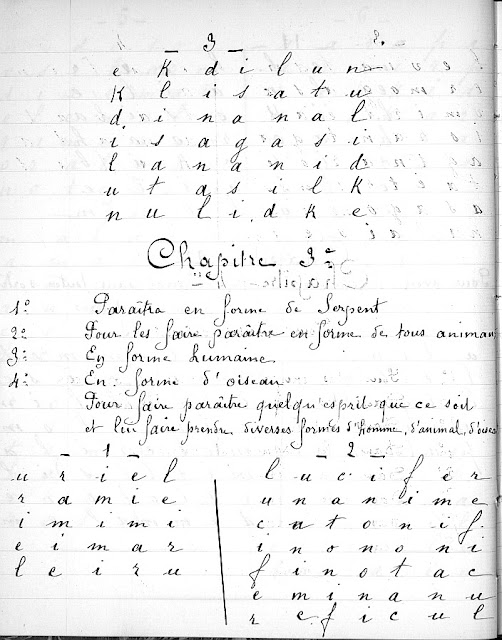 - 3 -
e K d i l u n
K l i s a t u
d i n a n a l
i s a g a s i
l a n a n i d
u t a s i l K
n u l i d K e
Chapitre 3e
1° Paraîtra en forme de Serpent
2° Pour les faire paraître en forme de tous animau
3° En forme humaine
4° En forme d'oiseau
Pour faire paraître quelqu'esprit que ce soit
et lui faire prendre diverses formes d'homme, d'animal, d'oisea
- 1 -
u r i e l
r a m i e
i m i m i
e i m a r
l e i r u
- 2 -
l u c i f e r
u n a n i m e
c a t o n i f
i n o n o n i
f i n o t a c
e m i n a n u
r e f i c u l